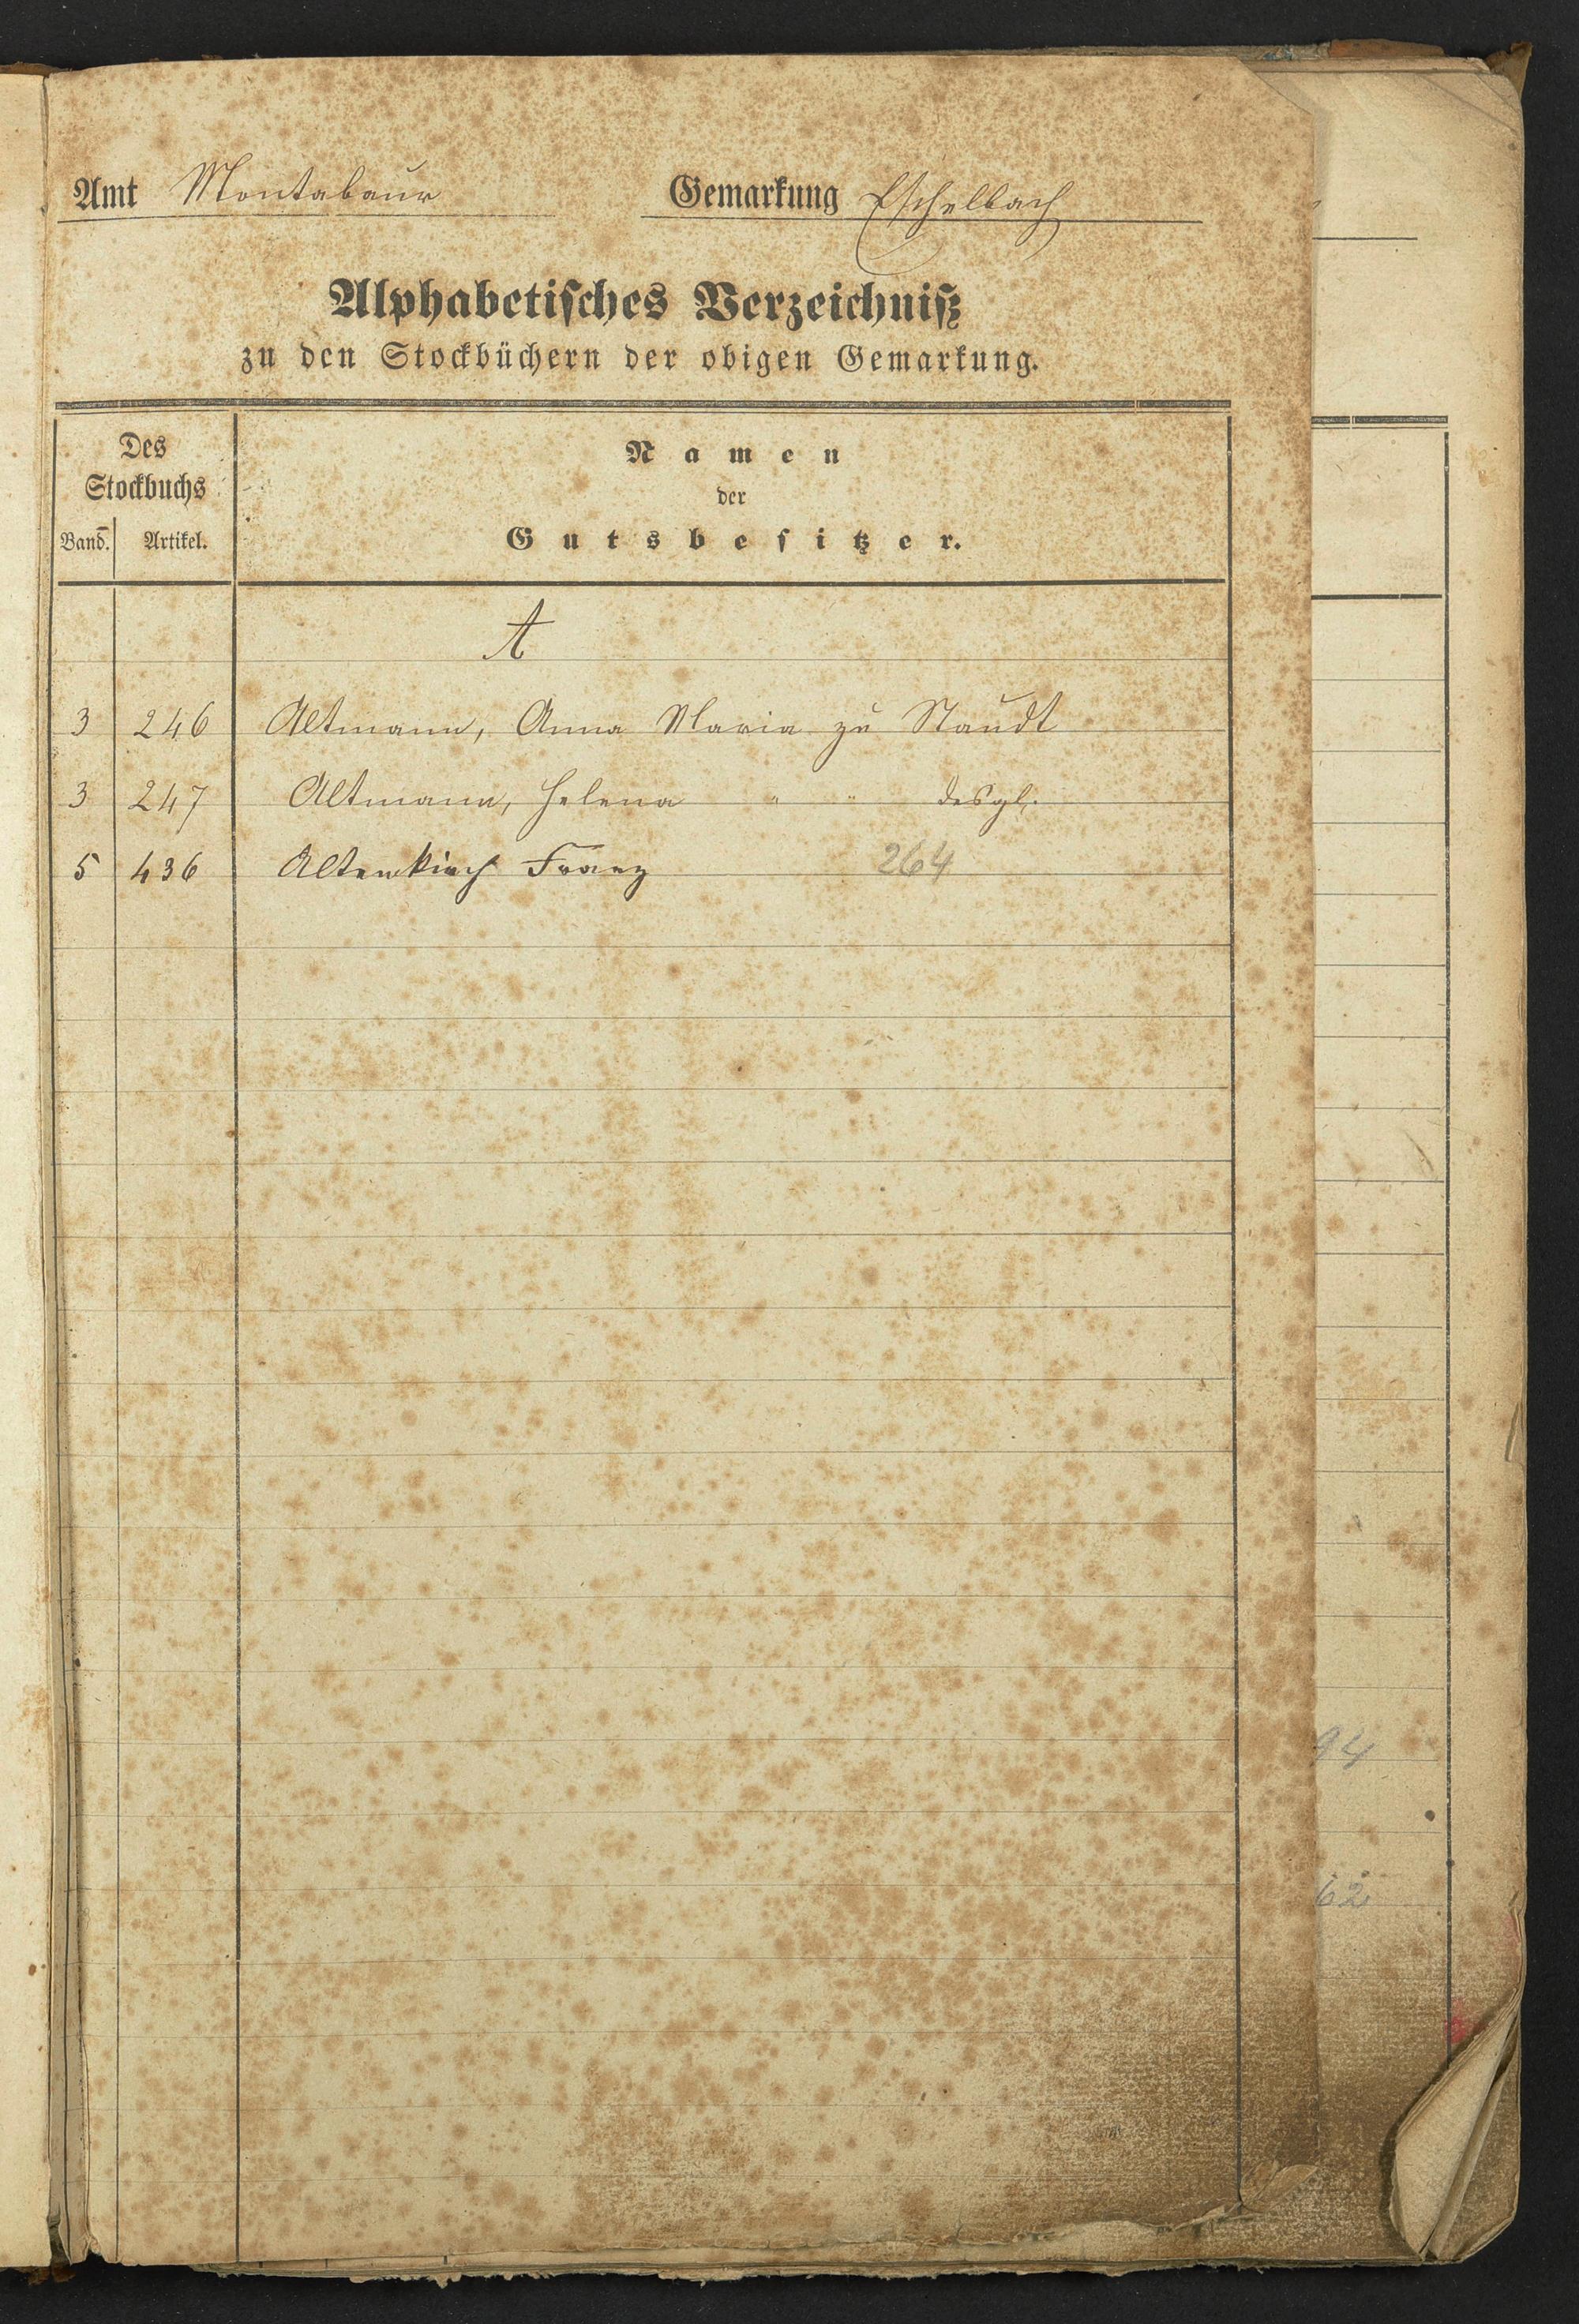 Amt Montabaur Gemarkung Eschelbach
Alphabetisches Verzeichniß
zu den Stockbüchern der obigen Gemarkung.
Des
Stockbuchs
Band. Artikel.
Namen
der
Gutsbesitzer.
A
3 246 Altmann, Anna Maria zu Staudt
3 247 Altmann, Helena " " desgl.
5 436 Altenkirch Franz 264
94
62